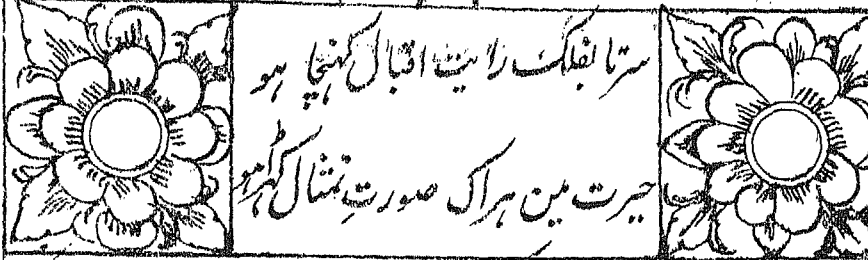 سرتا بفلک رایت اقبال کہنچا ہو
حیرت مین ہر اک صورتِ تمثال کھڑا ہو